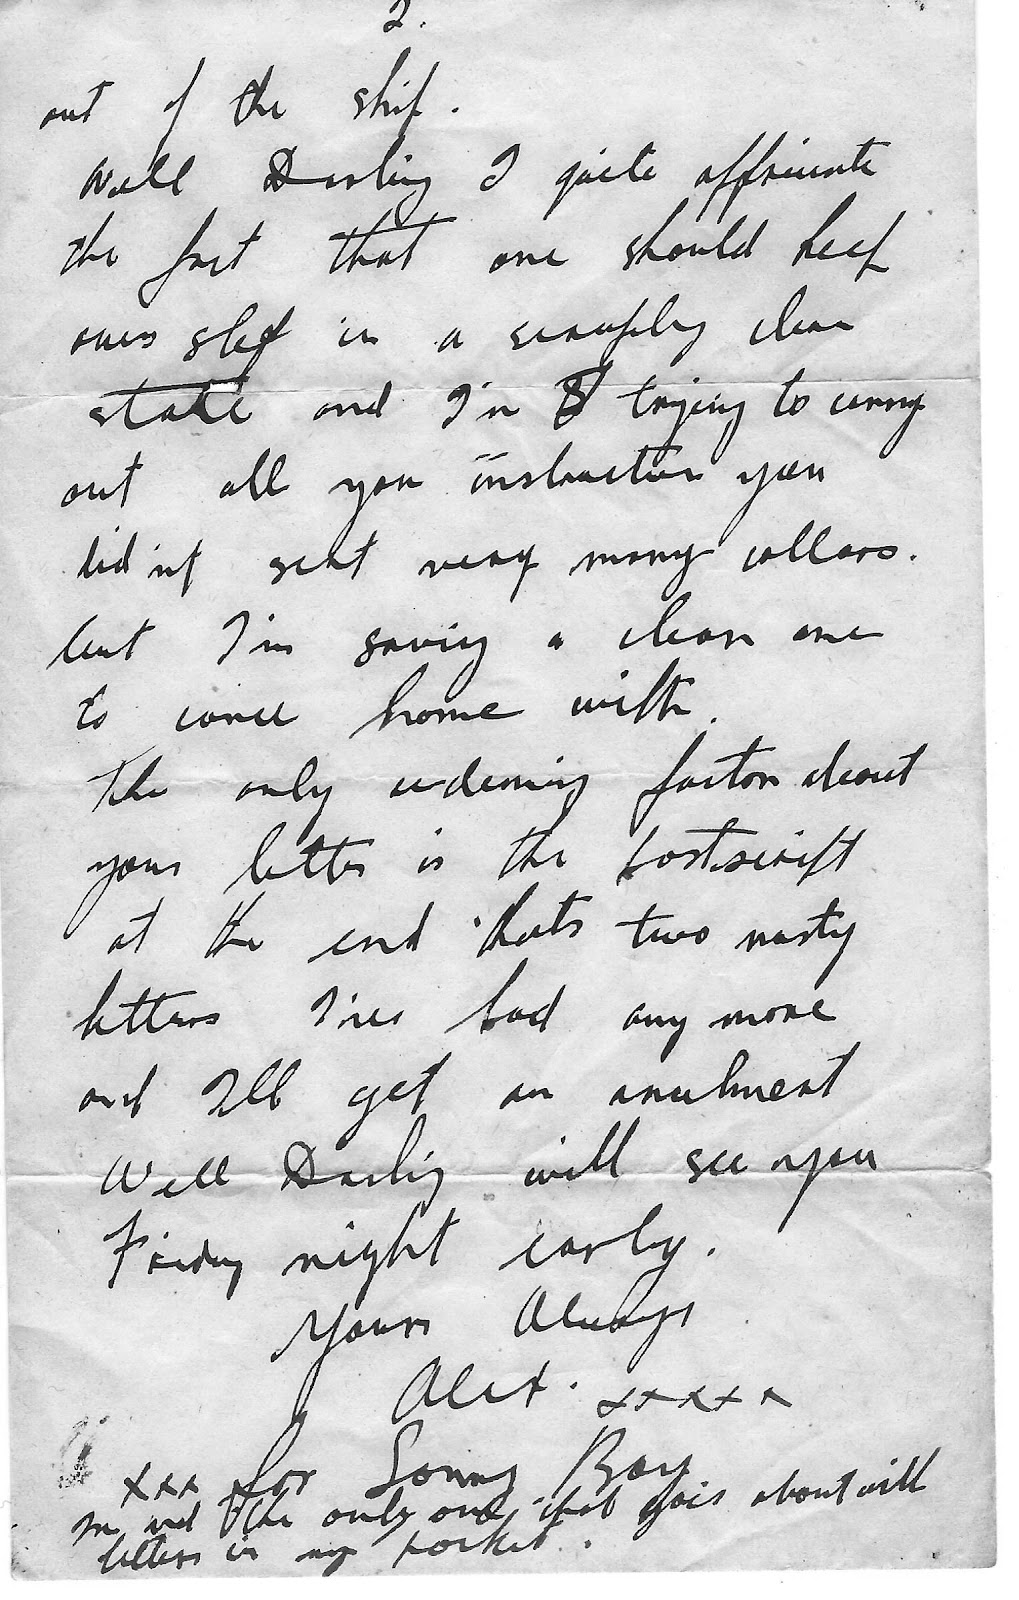 2.
out of the ship.
Well Darling I quite appriciate
the fact that one should keep
ones slef in a scruply clean
state and I'm trying to carry
out all you instruction you
did'nt sent very many collars.
but I'm saving a clean one
to come home with.
The only redeming factor about
your letter is the postscript
at the end thats two nasty
letters I've had any more
and I'll get an anulment
Well Darling will see you
Friday night early.
Yours Always
Alex. xxxxx
xxx for Sonny Boy
I'm not the only one that goes about with
letters in my pocket.